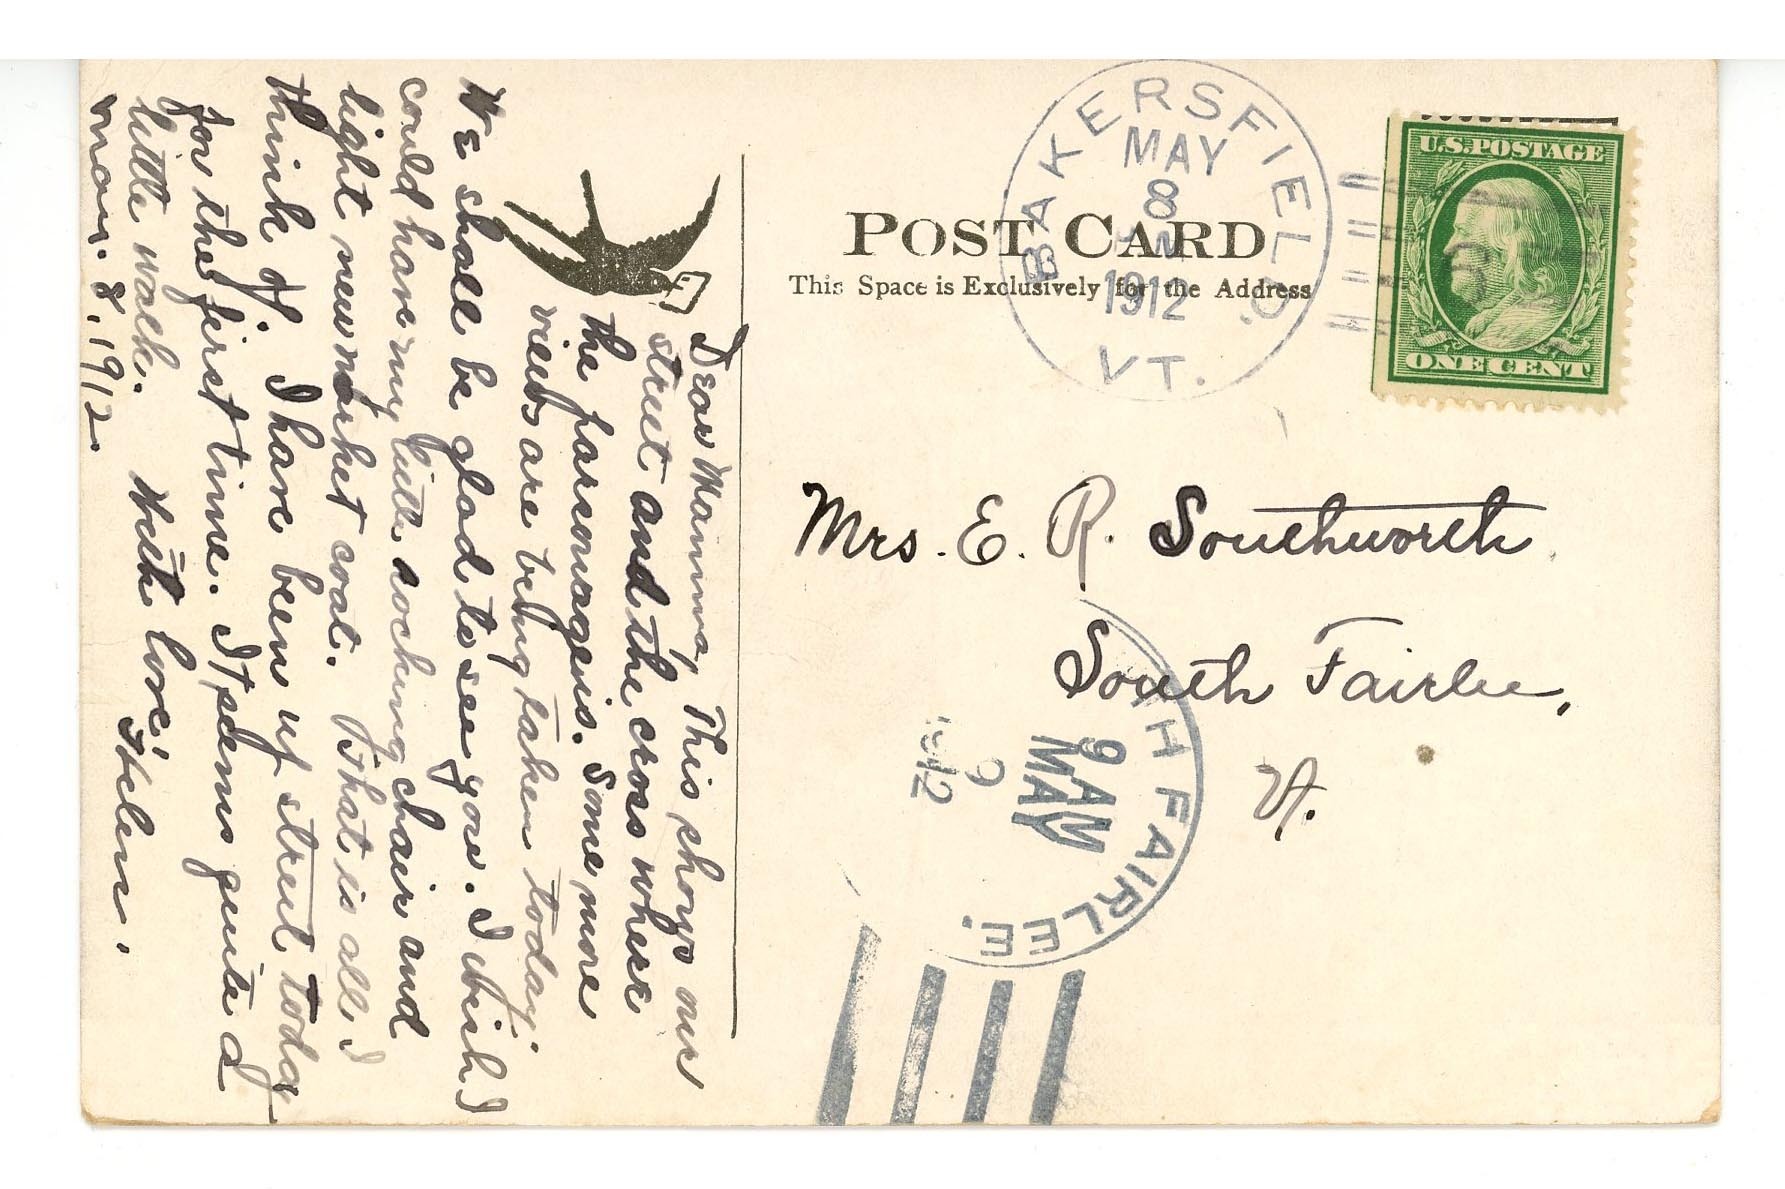 POST CARD
This Space is Exclusively for the Address
BAKERSFIELD,
MAY
8
1912
VT.
U.S.POSTAGE
ONE CENT
Mrs. E. R. Southworth
South Fairlee,
Vt.
TH FAIRLEE.
9 AM
MAY
9
1912
Dear Mamma, This shows our
street and the cross where
the parsonage is. Some more
views are being taken today.
We shall be glad to see you. I wish I
could have my little rocking chair and
light newmarket coat. That is all I
think of. I have been up street today
for the first time. It seems quite a
little walk. With love, Helen.
May. 8, 1912.